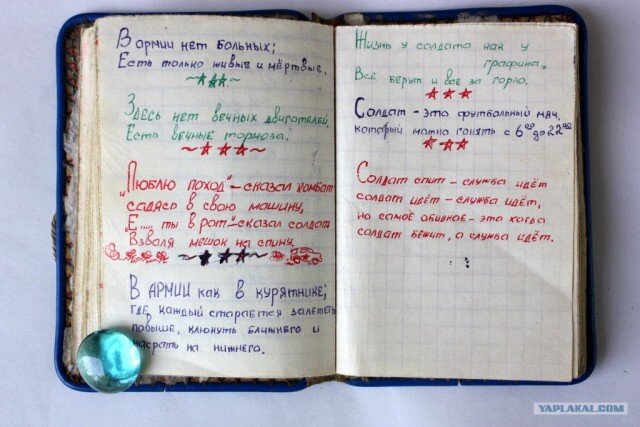 В армии нет больных;
Есть только живые и мёртвые.
Здесь нет вечных двигателей,
Есть вечные тормоза.
"Люблю поход" – сказал комбат
садясь в свою машину,
Е.... ты в рот" – сказал солдат
Взваля мешок на спину.
В армии как в курятнике;
где каждый старается залететь
повыше, клюнуть ближнего и
насрать на нижнего.
Жизнь у солдата как у
графина,
Все берут и все за горло.
Солдат – это футбольный мяч,
который можно гонять с 6⁰⁰ до 22⁰⁰
Солдат спит – служба идёт
солдат идёт – служба идёт,
но самое обидное – это когда
солдат бежит, а служба идёт.
YAPLAKAL.COM